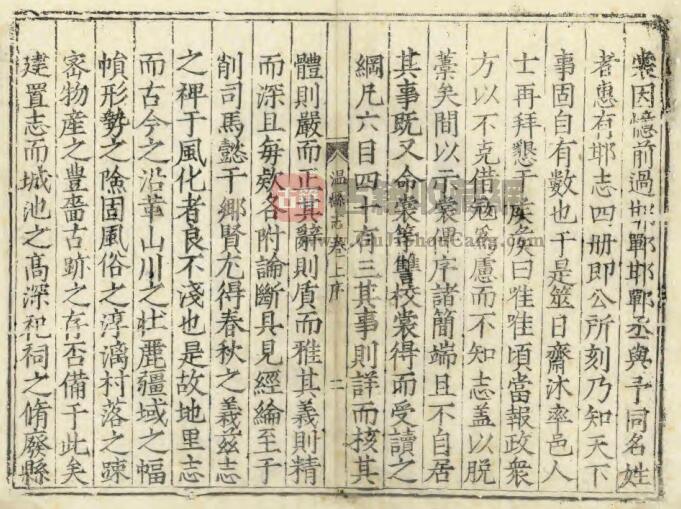 裳因憶前過邯鄲邯鄲丞與予同名姓
者惠有邯志四册即公所刻乃知天下
事固自有數也于是筮日齋沐率邑人
士再拜懇于庭矦曰唯唯頃當報政衆
方以不克借冦為慮而不知志盖以脱
藁矣間以示裳俾序諸簡端且不自居
其事既又命裳等讐校裳得而受讀之
綱凡六目四十有三其事則詳而核其
温縣志卷上序 二
體則嚴而正其辭則質而雅其義則精
而深且每欵各附論斷具見經綸至于
削司馬懿于鄉賢尤得春秋之義兹志
之裨于風化者良不淺也是故地里志
而古今之沿革山川之壮麗疆域之幅
幀形勢之險固風俗之淳漓村落之踈
宻物産之豐嗇古跡之存否備于此矣
建置志而城池之高深祀祠之脩廢縣
古籍收藏网
www.GuJiShouCang.com